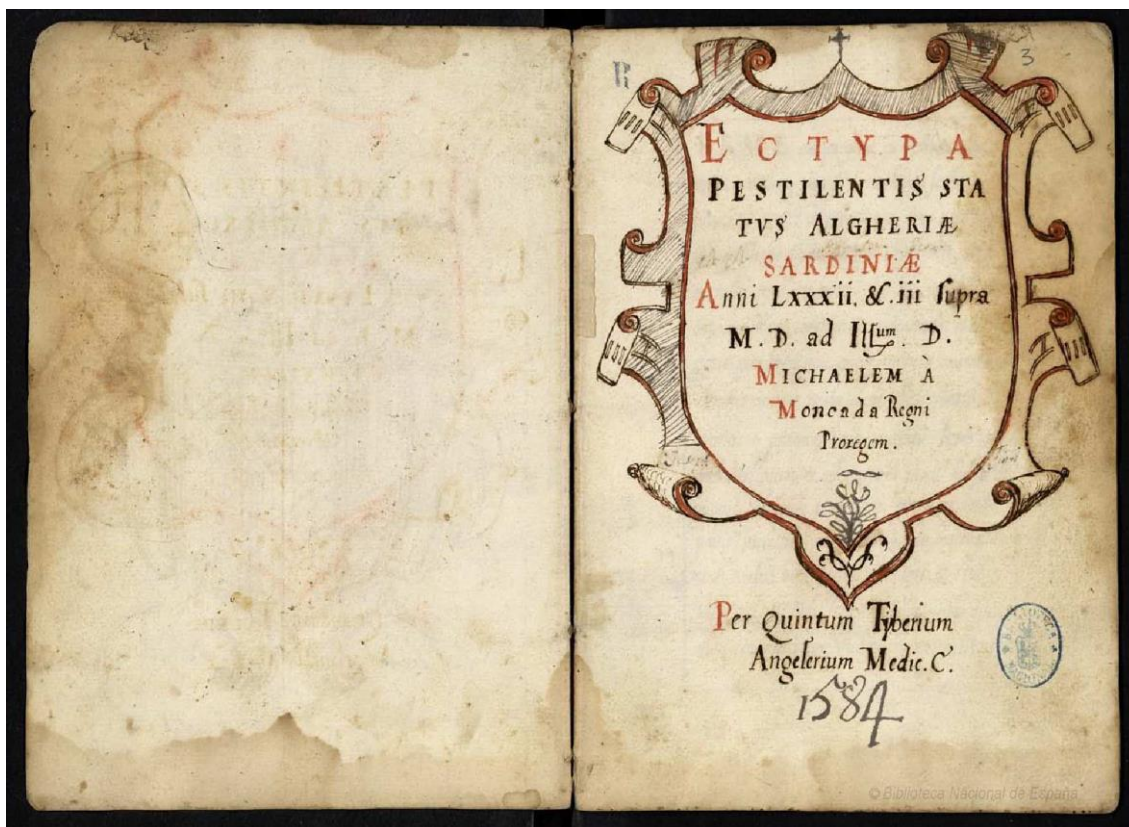 3
ECTYPA
PESTILENTIS STA
TVS ALGHERIÆ
SARDINIÆ
Anni Lxxxii. &. iii supra
M. D. ad Illum. D.
MICHAELEM À
Moncada Regni
Proregem.
Per Quintum Tyberium
Angelerium Medic. C.
1584
© Biblioteca Nacional de España